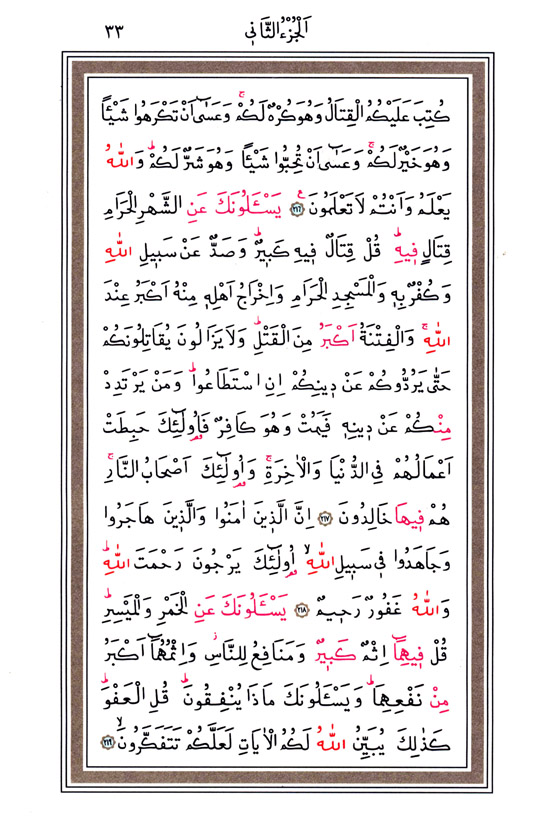 اَلْجُزْءُ الثَّانٖي ٣٣
كُتِبَ عَلَيْكُمُ الْقِتَالُ وَهُوَ كُرْهٌ لَكُمْۚ وَعَسٰٓى اَنْ تَكْرَهُوا شَيْـًٔا
وَهُوَ خَيْرٌ لَكُمْۚ وَعَسٰٓى اَنْ تُحِبُّوا شَيْـًٔا وَهُوَ شَرٌّ لَكُمْۜ وَاللّٰهُ
يَعْلَمُ وَاَنْتُمْ لَا تَعْلَمُونَ۟ ﴿٢١٦﴾ يَسْـَٔلُونَكَ عَنِ الشَّهْرِ الْحَرَامِ
قِتَالٍ فٖيهِۜ قُلْ قِتَالٌ فٖيهِ كَبٖيرٌۜ وَصَدٌّ عَنْ سَبٖيلِ اللّٰهِ
وَكُفْرٌ بِهٖ وَالْمَسْجِدِ الْحَرَامِ وَاِخْرَاجُ اَهْلِهٖ مِنْهُ اَكْبَرُ عِنْدَ
اللّٰهِۚ وَالْفِتْنَةُ اَكْبَرُ مِنَ الْقَتْلِۜ وَلَا يَزَالُونَ يُقَاتِلُونَكُمْ
حَتّٰى يَرُدُّوكُمْ عَنْ دٖينِكُمْ اِنِ اسْتَطَاعُواۜ وَمَنْ يَرْتَدِدْ
مِنْكُمْ عَنْ دٖينِهٖ فَيَمُتْ وَهُوَ كَافِرٌ فَاُو۬لٰٓئِكَ حَبِطَتْ
اَعْمَالُهُمْ فِي الدُّنْيَا وَالْاٰخِرَةِۚ وَاُو۬لٰٓئِكَ اَصْحَابُ النَّارِۚ
هُمْ فٖيهَا خَالِدُونَ ﴿٢١٧﴾ اِنَّ الَّذٖينَ اٰمَنُوا وَالَّذٖينَ هَاجَرُوا
وَجَاهَدُوا فٖي سَبٖيلِ اللّٰهِۙ اُو۬لٰٓئِكَ يَرْجُونَ رَحْمَتَ اللّٰهِۜ
وَاللّٰهُ غَفُورٌ رَحٖيمٌ ﴿٢١٨﴾ يَسْـَٔلُونَكَ عَنِ الْخَمْرِ وَالْمَيْسِرِۜ
قُلْ فٖيهِمَٓا اِثْمٌ كَبٖيرٌ وَمَنَافِعُ لِلنَّاسِۘ وَاِثْمُهُمَٓا اَكْبَرُ
مِنْ نَفْعِهِمَاۜ وَيَسْـَٔلُونَكَ مَاذَا يُنْفِقُونَۜ قُلِ الْعَفْوَۜ
كَذٰلِكَ يُبَيِّنُ اللّٰهُ لَكُمُ الْاٰيَاتِ لَعَلَّكُمْ تَتَفَكَّرُونَۙ ﴿٢١٩﴾